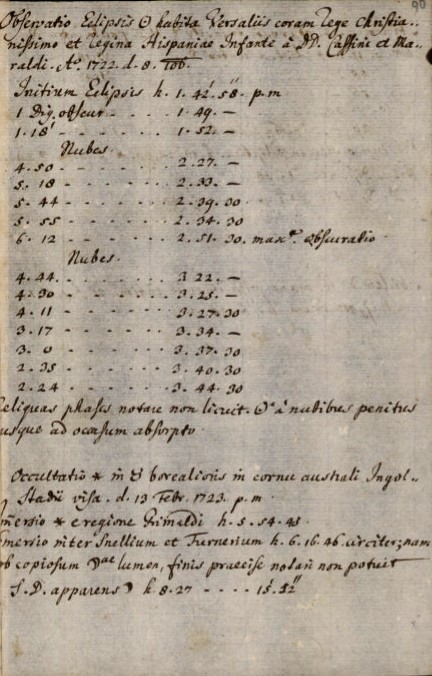 90
Observatio Eclipsis ☉ habita Versaliis coram Rege Christia-
nissimo et Regina Hispaniae Infante à DD. Cassini et Ma-
raldi. Aº. 1722. d. 8. Xbb.
Initium Eclipsis h. 1. 42'. 58". p. m
1 Dig. obscur - - - - 1. 49. —
1. 18' - - - - - - 1. 52. —
Nubes.
4. 50 - - - - - - 2. 27. —
5. 18 - - - - - - 2. 33. —
5. 44 - - - - - - 2. 39. 30
5. 55 - - - - - - 2. 34. 30
6. 12 - - - - - - 2. 51. 30. maxª. obscuratio
Nubes.
4. 44. - - - - - - 3 22. —
4. 30 - - - - - - 3. 25. —
4. 11 - - - - - - 3. 27. 30
3. 17 - - - - - - 3. 34. —
3. 0 - - - - - - 3. 37. 30
2. 35 - - - - - - 3. 40. 30
2. 24 - - - - - - 3. 44. 30
Reliquas phases notare non licuit. ☉e à nubibus penitus
usque ad occasum absorpto.
Occultatio * in ♉ borealioris in cornu australi Ingol-
stadii visa. d. 13 Febr. 1723. p. m.
Immersio * e regione Grimaldi h. 5. 54. 45.
Emersio inter Snellium et Furnerium h. 6. 16. 46. circiter; nam
ob copiosum ☽ae lumen, finis praecise notari non potuit
S. D. apparens ☽ h. 8. 27 - - - - 15'. 52"